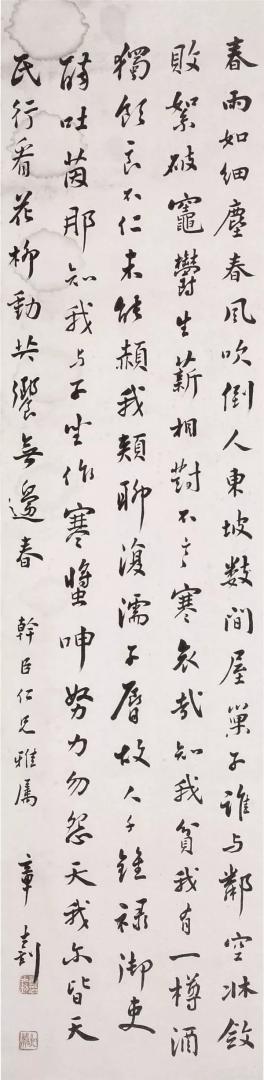 春雨如細塵春風吹倒人東坡數間屋巢子誰与鄰空牀斂
敗絮破竈鬱生薪相對不言寒哀哉知我貧我有一樽酒
獨飲良不仁未能赬我頰聊復濡子脣故人千鍾禄御吏
醉吐茵那知我与子坐作寒螿呻努力勿怨天我尔皆天
民行看花柳動共饗無邊春 幹臣仁兄雅属 章士釗